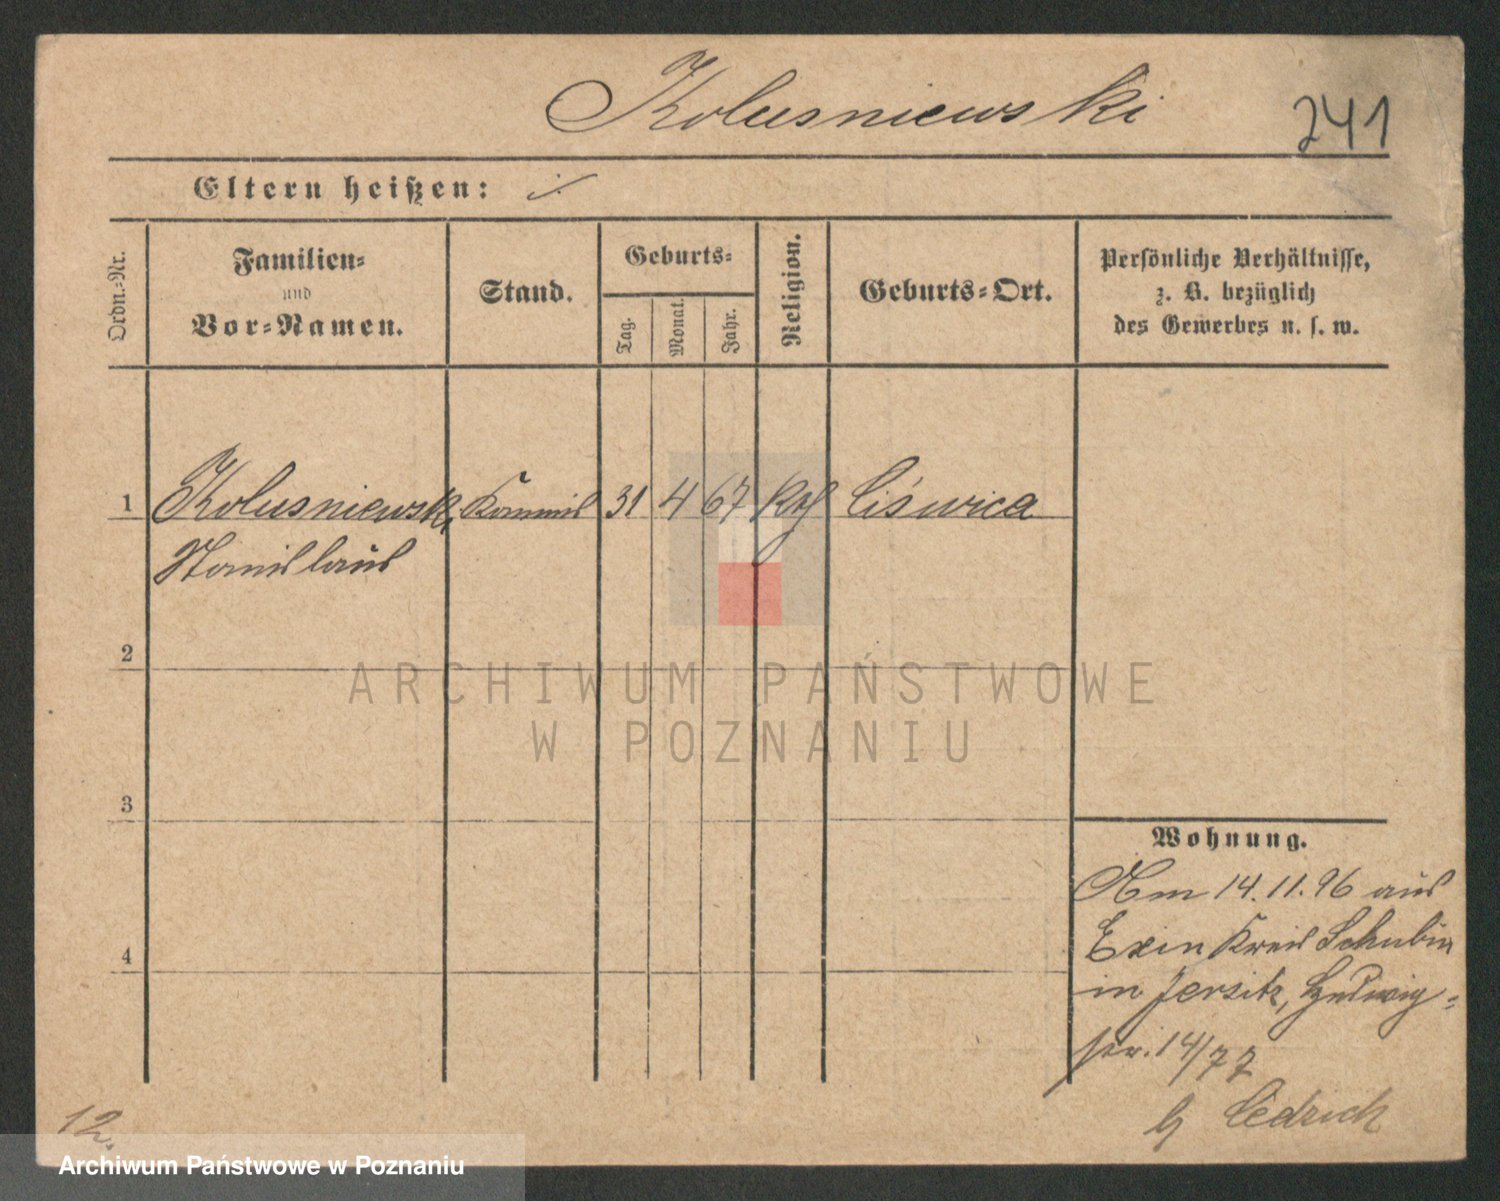 Kolusniewski
241
Eltern heißen: ./.
Ordn.-Nr.
Familien-
und
Vor-Namen.
Stand.
Geburts-
Tag.
Monat.
Jahr.
Religion.
Geburts-Ort.
Persönliche Verhältnisse,
z. B. bezüglich
des Gewerbes u. s. w.
1 Kolusniewski, Kommis 31 4 67 kth
Stanislaus
2
3
4
Wohnung.
Am 14.11.96 aus
Exin Kreis Schubin
in Jersitz, Hedwig-
str. 14/77
b/ Cedrich
12.
ARCHIWUM PAŃSTWOWE
W POZNANIU
Archiwum Państwowe w Poznaniu